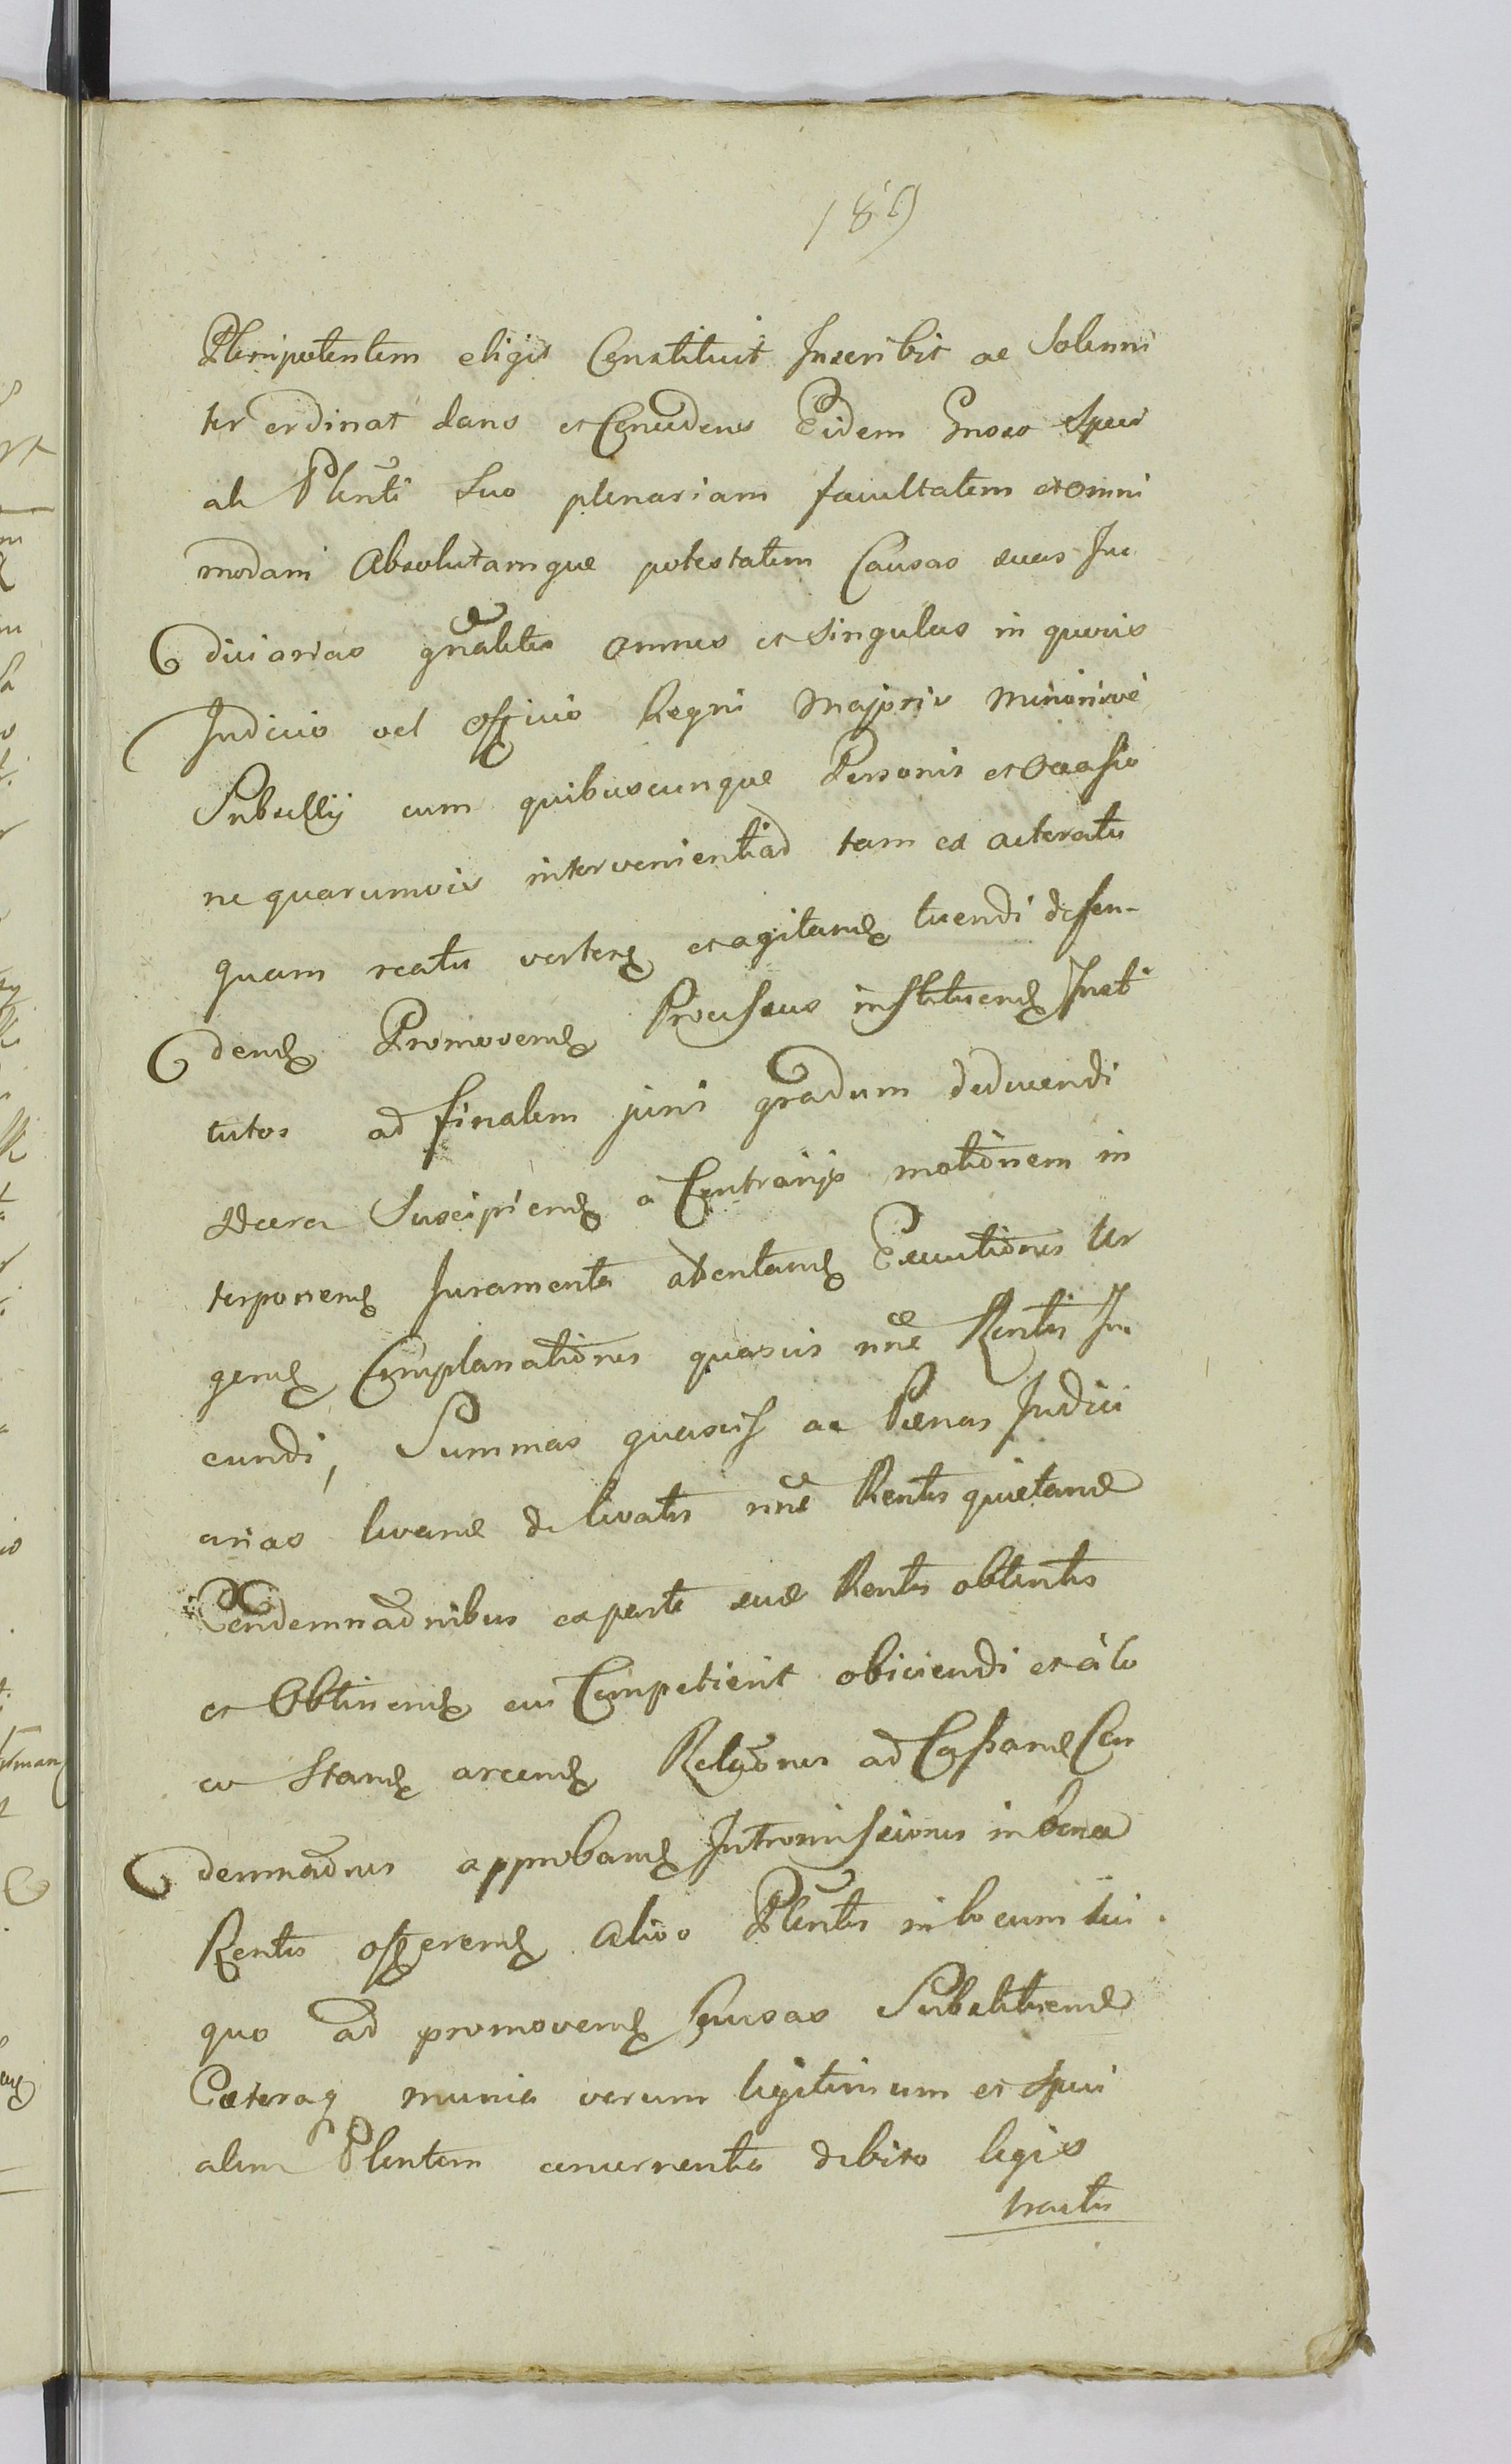 189
Plenipotentem eligit Constituit Inscribit ac Solenni
ter ordinat dans et Concedens Eidem Gnoso Speci
ali Plenti Suo plenariam facultatem et omni
modam Absolutamque potestatem Causas suas Ju
diciarias gnaliter omnes et Singulas in quovis
Judicio vel Officio Regni Majoris Minorisve
Subsellij cum quibuscunque Personis et Occasio
ne quarumvis intervenientiad tam ex actoratu
quam reatu verten et agitand tuendi defen-
dend Promovend Processus instituend Insti
tutos ad finalem juris gradum deducendi
Suscipiend a Contrarijs motionem in
terponend Juramenta attentand Executiones Ur
gend Complanationes quasvis nne Rentis In
eundi, Summas quasvis ac Pænas Judici
arias levand de levatis nne Rentis quietand
Condemnadnibus ex parte sue Rentis obtentis
et Obtinend cui Competierit obiiciendi et à lo
co Stand arcend Relaones ad Cassand Con
demnaones approband Intromissiones in bona
Rentis offerend Alios Plentes in locum sui
quo ad promovend Causas Substituend
Cæteraq munia verum legitimum et Speci
alem Plentem concernentia debito legis
tractu